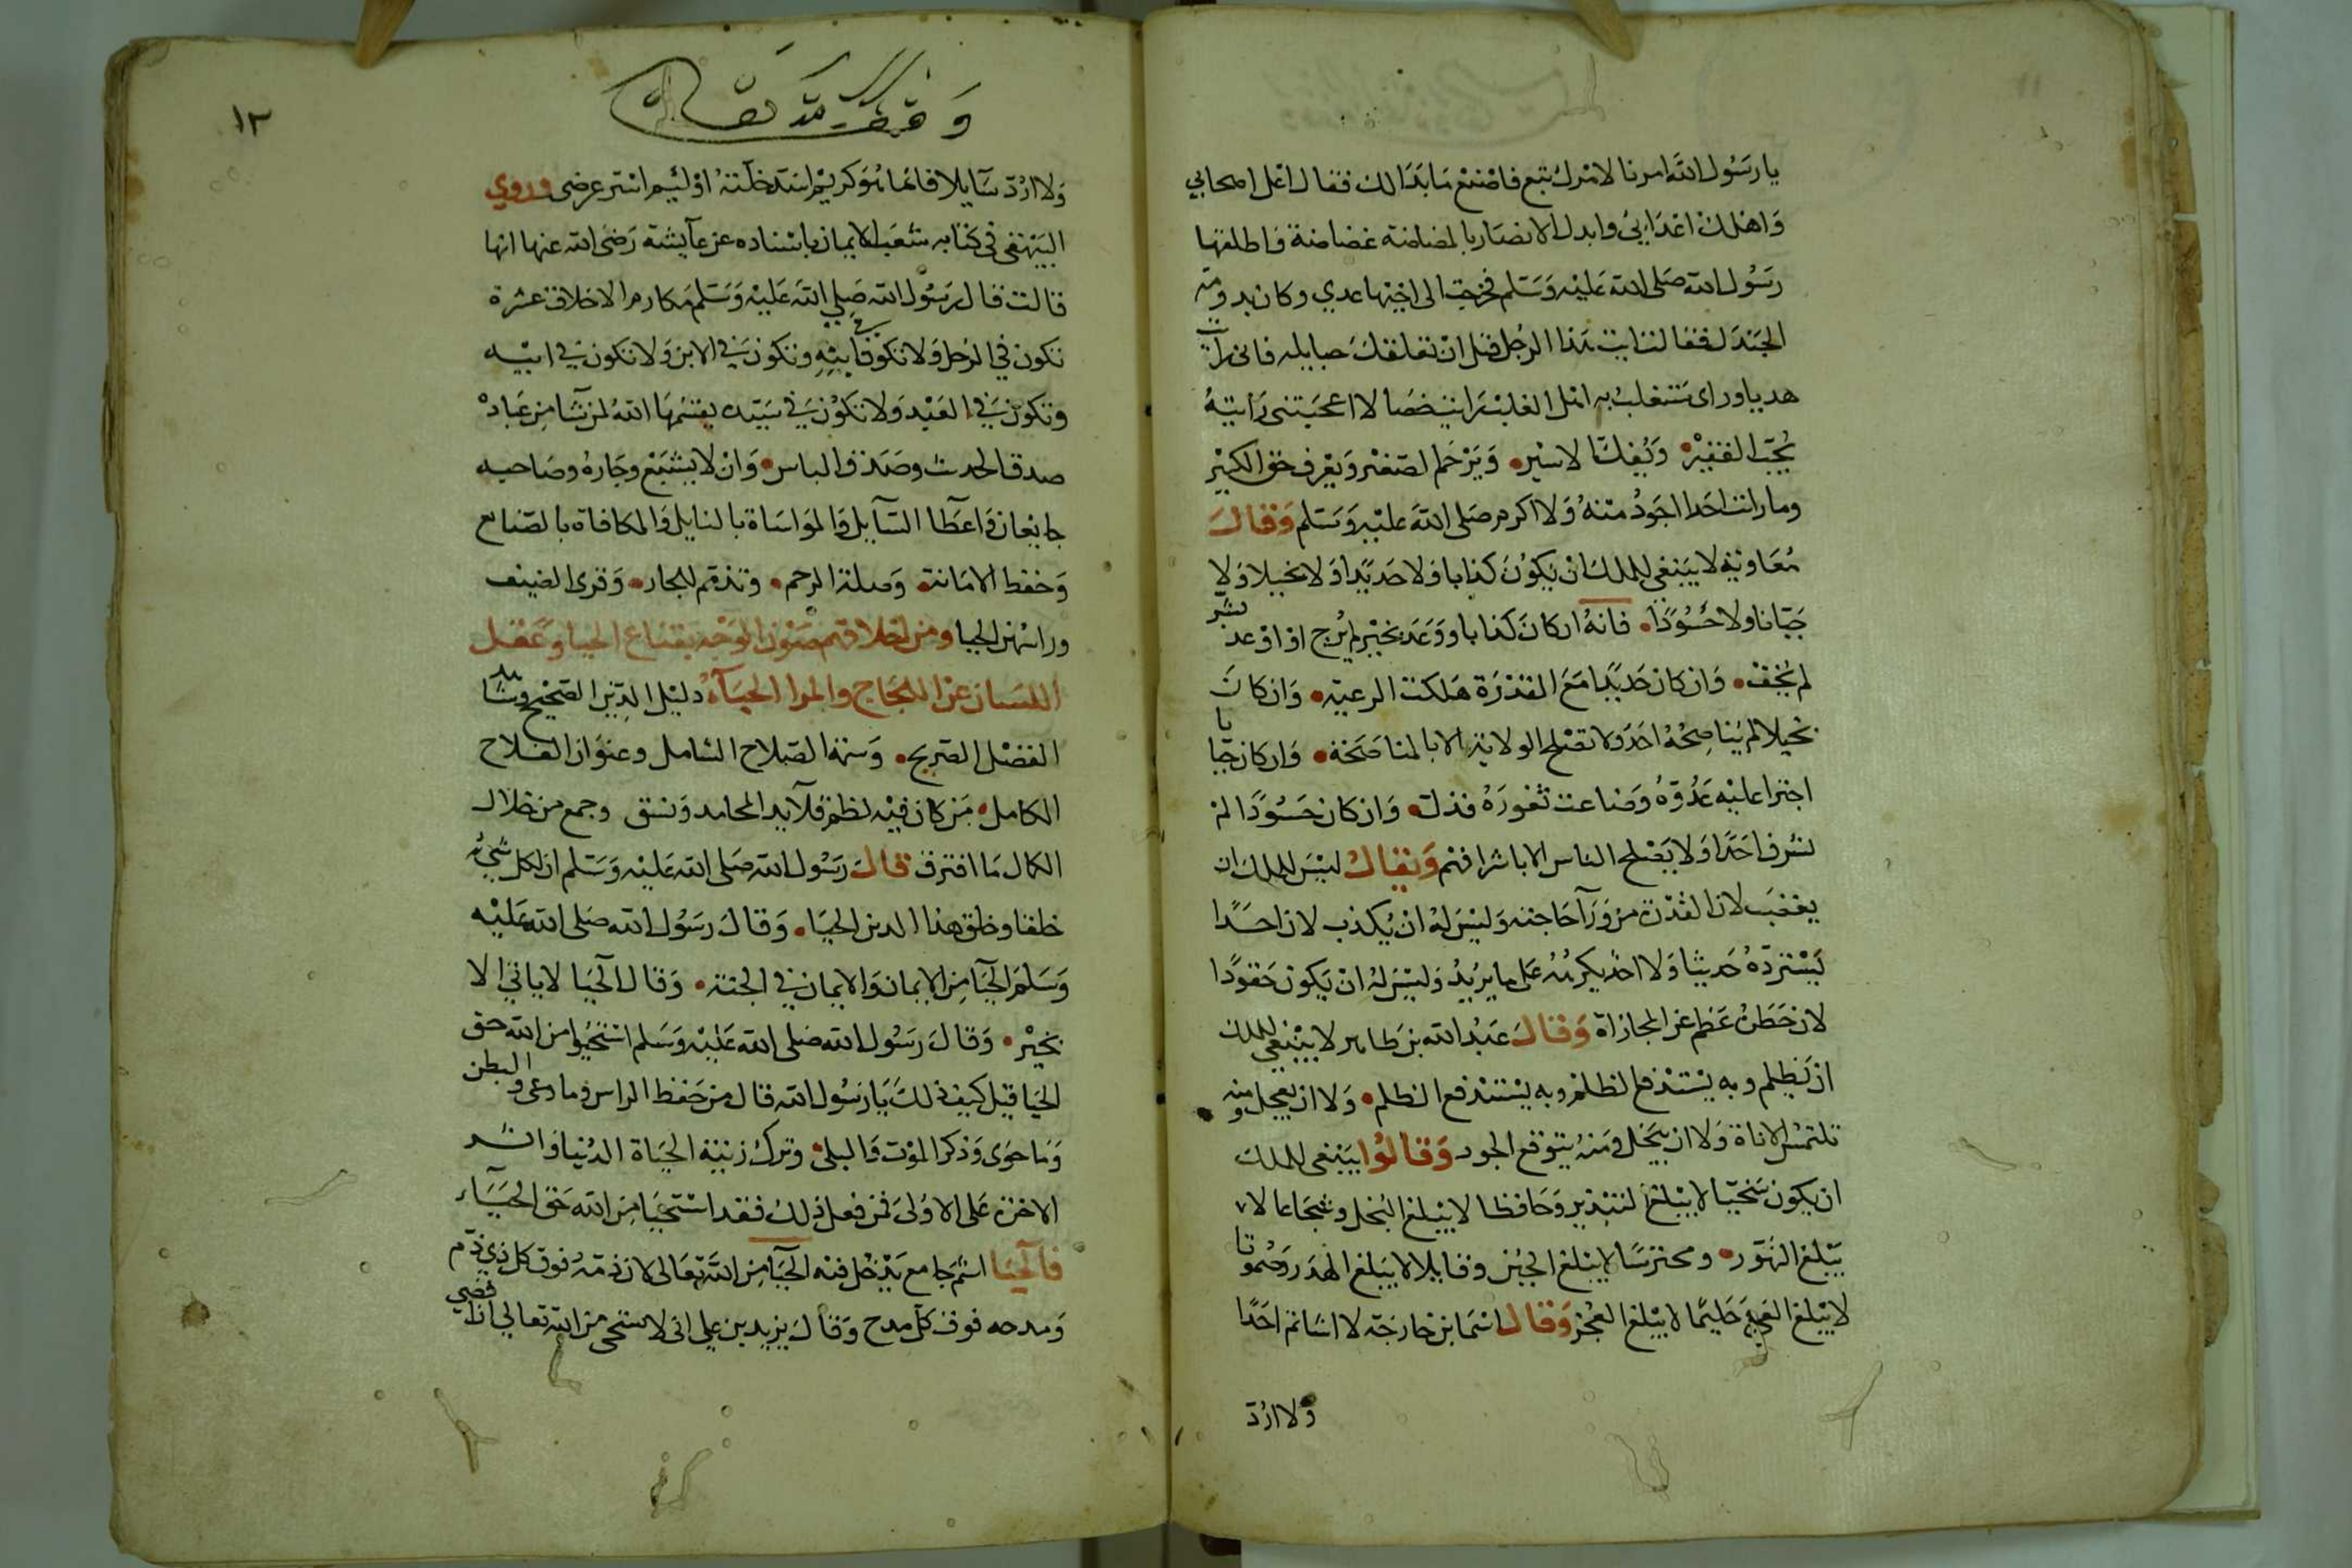 يا رسول الله امرنا لامرك تبع فاصنع ما بدا لك فقال اغل اصحابي
واهلك اعدايي وابدل الانصار بالمضاضة غضاضة فاطلقها
رسول الله صلى الله عليه وسلم فخرجت الى اخيها عدي وكان بدومة
الجندل فقالت ايت هذا الرجل قبل ان تعلقك حبايله فاني رايت
هديا وراى ستغلب به اهل الغلب رايت خصالا اعجبتني رايته
يحب الفقير ويفك الاسير ويرحم الصغير ويعرف حق الكبير
وما رايت احدا اجود منه ولا اكرم صلى الله عليه وسلم وقال
معاوية لا ينبغي للملك ان يكون كذابا ولا حديدا ولا بخيلا ولا
جبانا ولا حسودا فانه ان كان كذابا ووعد بخير لم يرج او اوعد بشر
لم يخف وان كان حديدا مع القدرة هلكت الرعية وان كان
بخيلا لم يناصحه احد ولا تصلح الولاية الا بالمناصحة وان كان جبانا
اجترا عليه عدوه وضاعت ثغوره فذل وان كان حسودا لم
يشرف احدا ولا يصلح الناس الا باشرافهم ويقال ليس للملك ان
يغضب لان القدرة من ورآ حاجته وليس له ان يكذب لان احدا
لا يسترده حديثا ولا احد يكرهه على ما يريد وليس له ان يكون حقودا
لان خطره عظم عن المجازاة وقال عبد الله بن طاهر لا ينبغي للملك
ان يظلم وبه يستدفع الظلم وبه يستدفع الظلم ولا ان يعجل ومنه
تلتمس الاناة ولا ان يبخل ومنه يتوقع الجود وقالوا ينبغي للملك
ان يكون سخيا لا يبلغ التبذير وحافظا لا يبلغ البخل وشجاعا لا
يبلغ التهور ومحترسا لا يبلغ الجبن وقايلا لا يبلغ الهدر وصموتا
لا يبلغ العي وحليما لا يبلغ العجز وقال اسما بن خارجة لا اشاتم احدا
ولا ارد
وقف لله تعالى
١٢
ولا ارد سآيلا فانما هو كريم اسد خلته او ليم اشتر عرضى وروي
البيهقي في كتابه شعب الايمان باسناده عن عآيشة رضى الله عنها انها
قالت قال رسول الله صلى الله عليه وسلم مكارم الاخلاق عشرة
تكون في الرجل ولا تكون في ابنه وتكون في الابن ولا تكون في ابيه
وتكون في العبد ولا تكون في سيده يقسمها الله لمن شا من عباده
صدق الحديث وصدق الباس وان لا يشبع وجاره وصاحبه
جايعان واعطآ السآيل والمواساة بالنايل والمكافاة بالصنايع
وحفظ الامانة وصلة الرحم وتذمم للجار وقرى الضيف
وراسهن الحيا ومن اخلاقهم صون الوجه بقناع الحيا وعقل
اللسان عن اللجاج والمرا الحيآء دليل الدين الصحيح وشاهد
الفضل الصريح وسمة الصلاح الشامل وعنوان الفلاح
الكامل من كان فيه نظم قلآيد المحامد ونسق وجمع من خلال
الكمال ما افترق قال رسول الله صلى الله عليه وسلم ان لكل شيء
خلقا وخلق هذا الدين الحيا وقال رسول الله صلى الله عليه
وسلم الحيا من الايمان والايمان في الجنة وقال الحيا لا ياتي الا
بخير وقال رسول الله صلى الله عليه وسلم استحيوا من الله حق
الحيا قيل كيف ذلك يا رسول الله قال من حفظ الراس وما وعى والبطن
وما حوى وذكر الموت والبلى وترك زينة الحياة الدنيا واثر
الاخرة على الاولى فمن فعل ذلك فقد استحيا من الله حق الحيآء
فالحيا اسم جامع يدخل فيه الحيا من الله تعالى لان ذمه فوق كل ذي ذم
ومدحه فوق كل مدح وقال يزيد بن علي اني لاستحى من الله تعالى اذا افضي